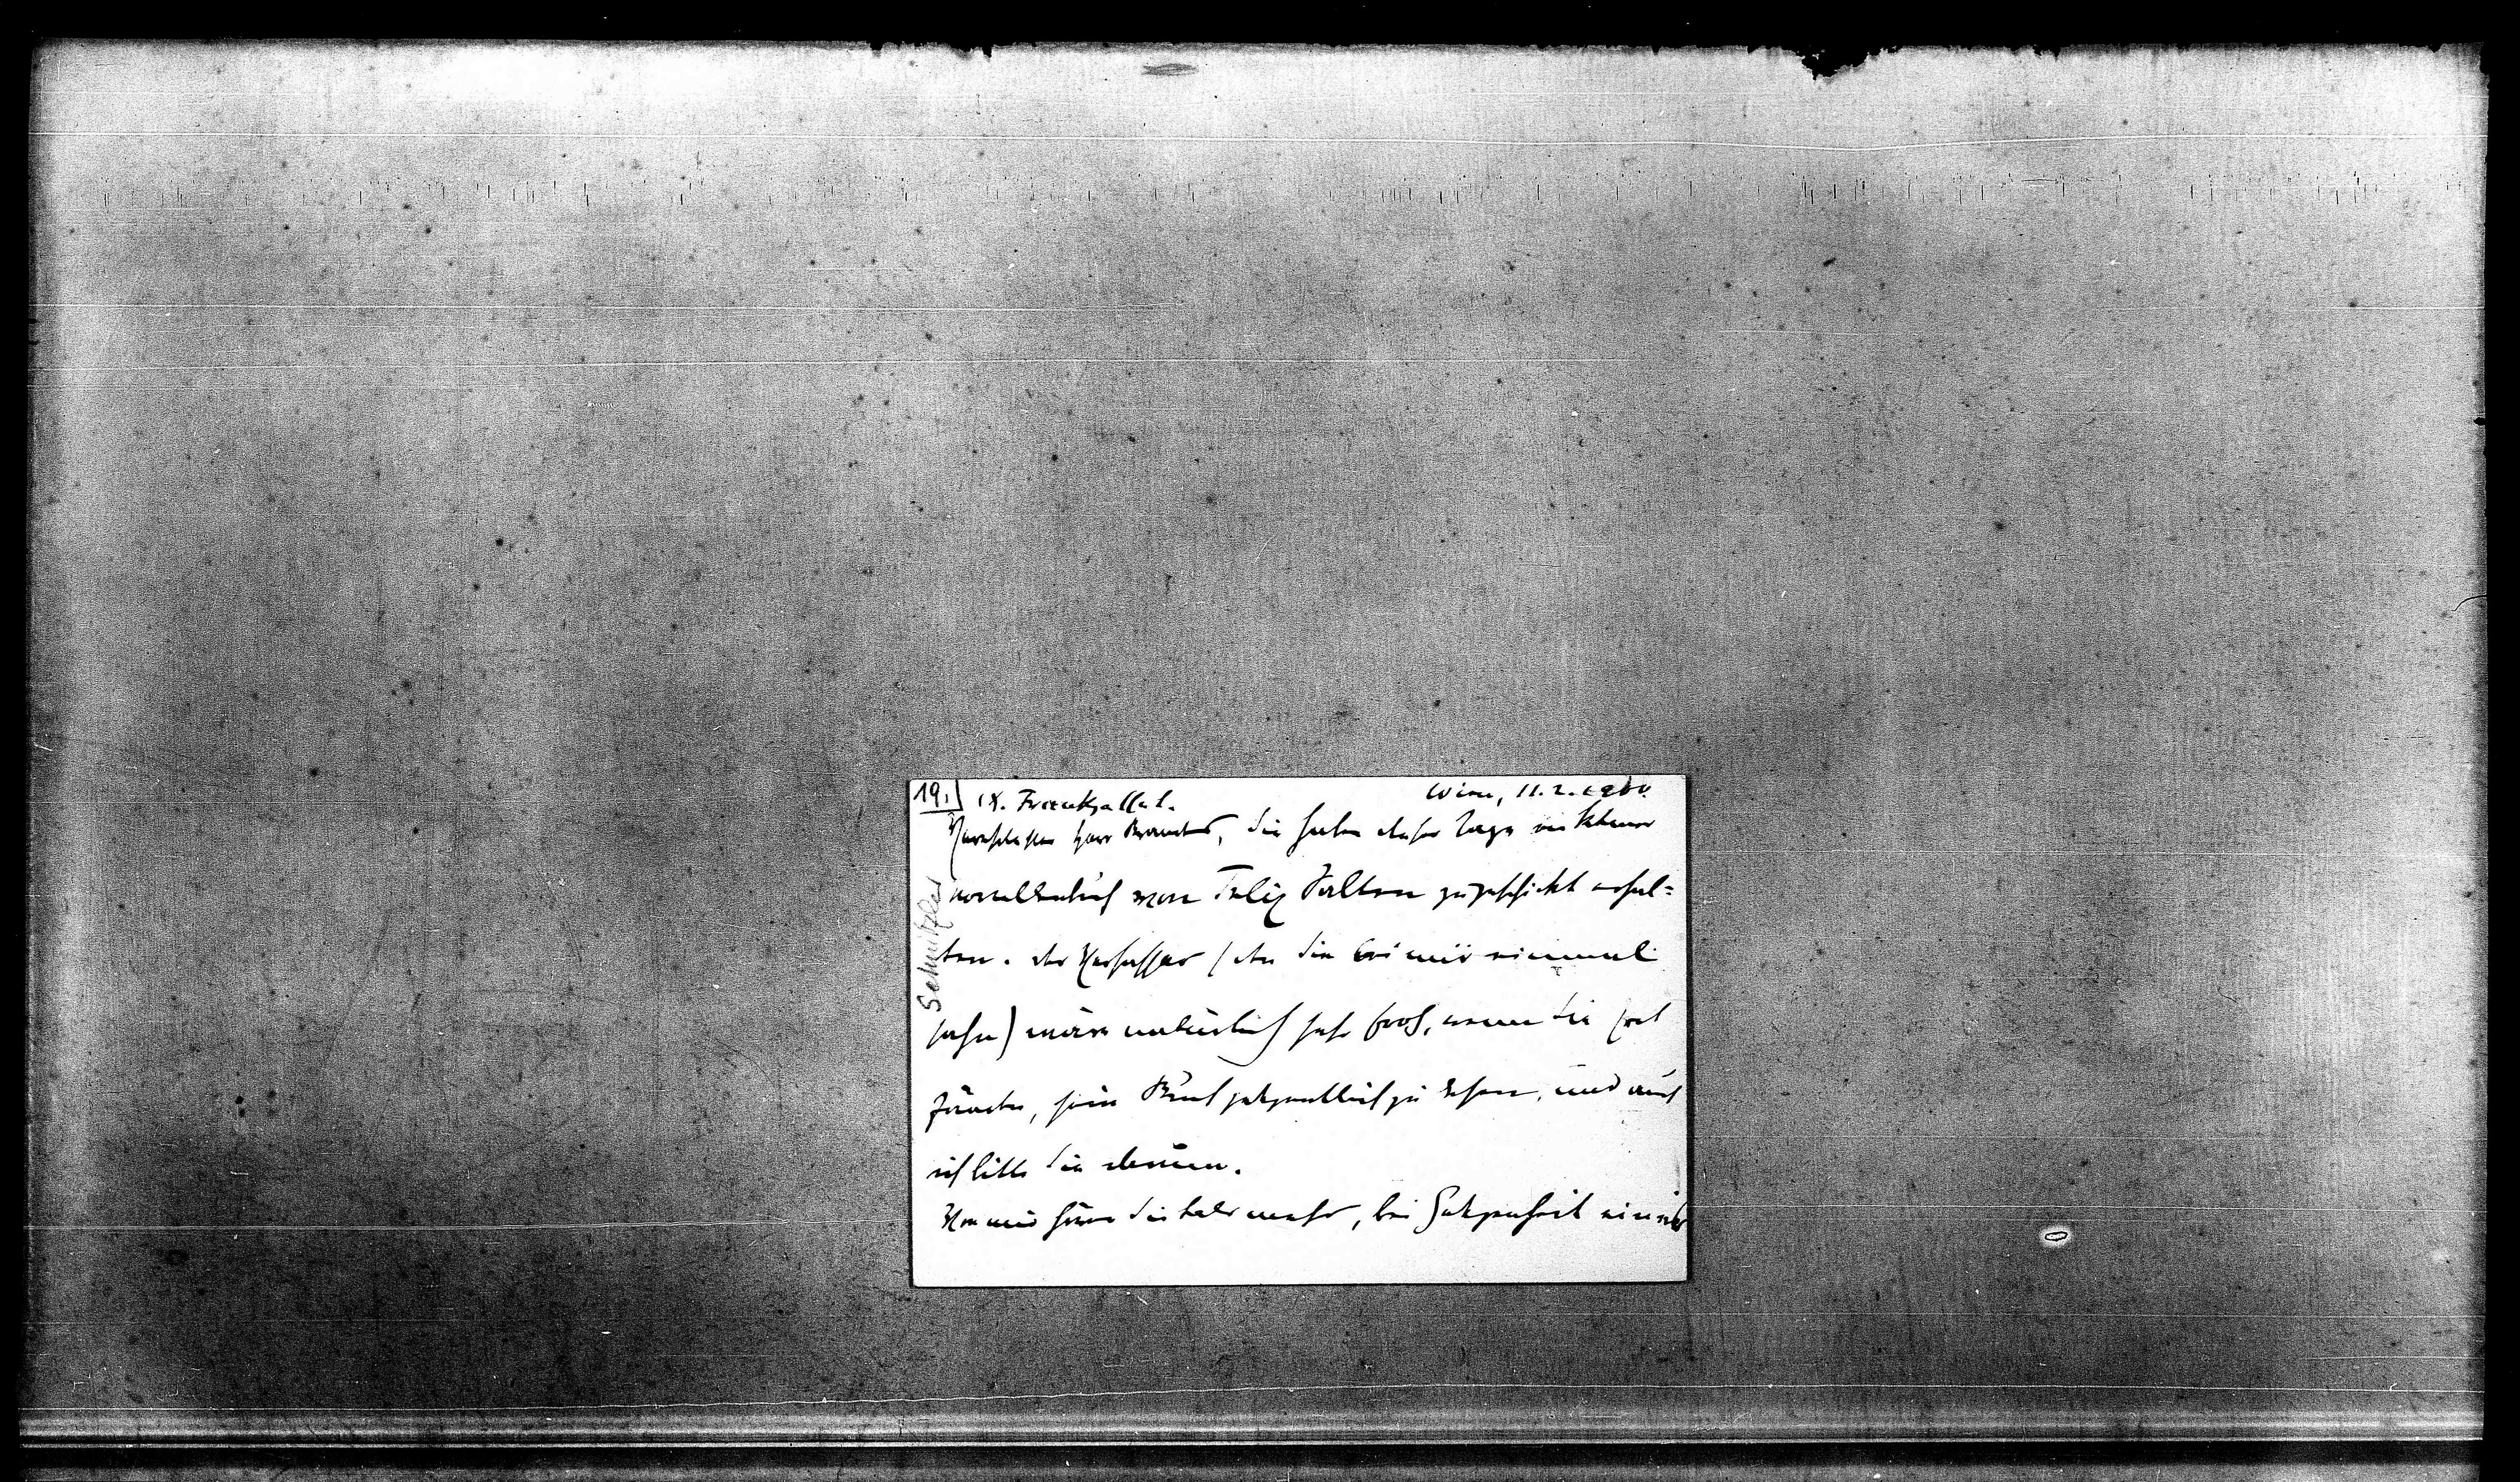 19.
IX. Frankgasse 1.
Wien, 11. 2. 1900.
Verehrtester Herr Brandes, Sie haben dieser Tage ein kleines
Novellenbuch von Felix Salten zugeschickt erhal=
ten. Der Verfasser (den Sie bei mir einmal
sahen) wäre natürlich sehr froh, wenn Sie Zeit
fänden, sein Buch gelegentlich zu lesen, und auch
ich bitte Sie darum.
Von mir hören Sie bald mehr, bei Gelegenheit
Schnitzler